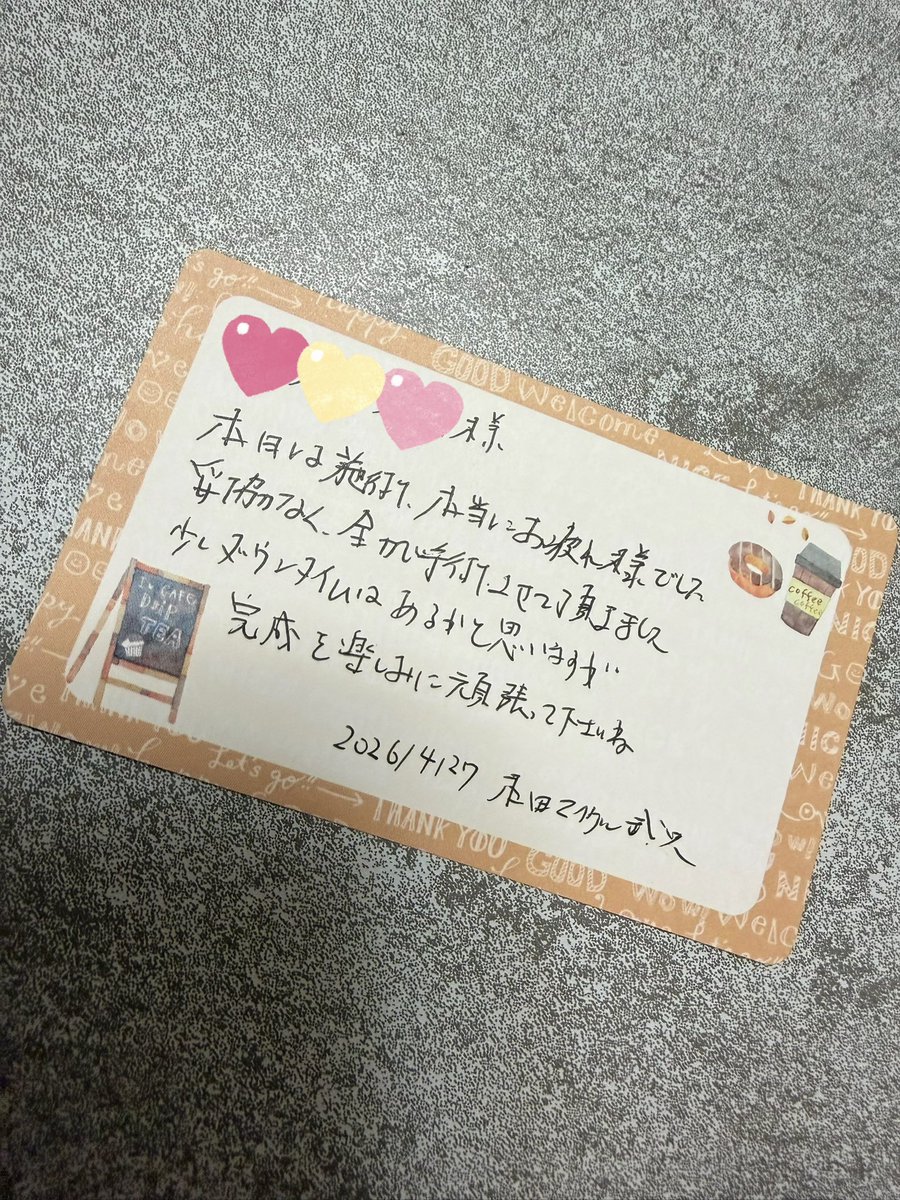 様
本日は施術、本当にお疲れ様でした
妥協なく、全力で手術させて頂きました
少しダウンタイムはあるかと思いますが
完成を楽しみに頑張って下さいね
2026/4/27 マイケル武沢
Let's go!!
happy
GOOD
Welcome
THANK YOU
IN CAFE
DRIP
TEA
coffee
coffee
Let's go!!
THANK YOU
GOOD
WOW!
Welc